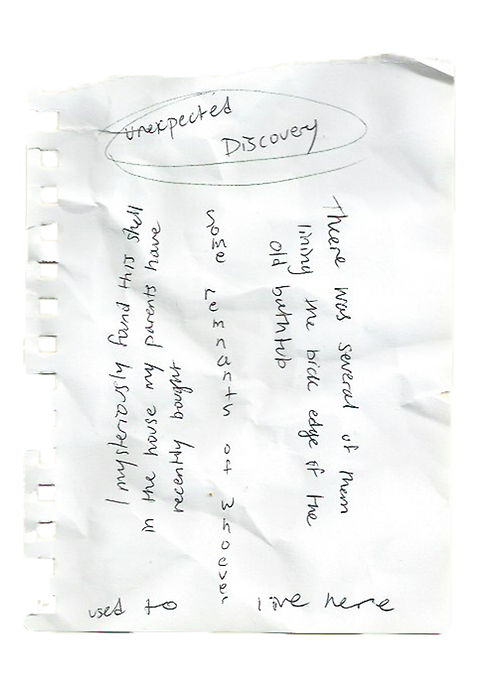 unexpected
Discovery
I mysteriously found this shell
in the house my parents have
recently bought
There was several of them
lining the back edge of the
old bathtub
some remnants of whoever
used to live here